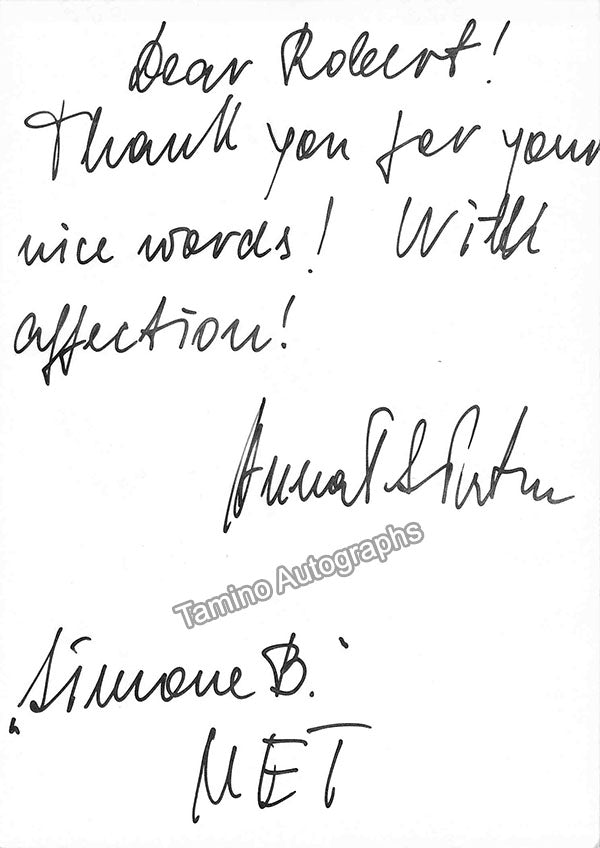 Dear Robert!
Thank you for your
nice words! With
affection!
Anna
Tamino Autographs
"Simone B."
MET